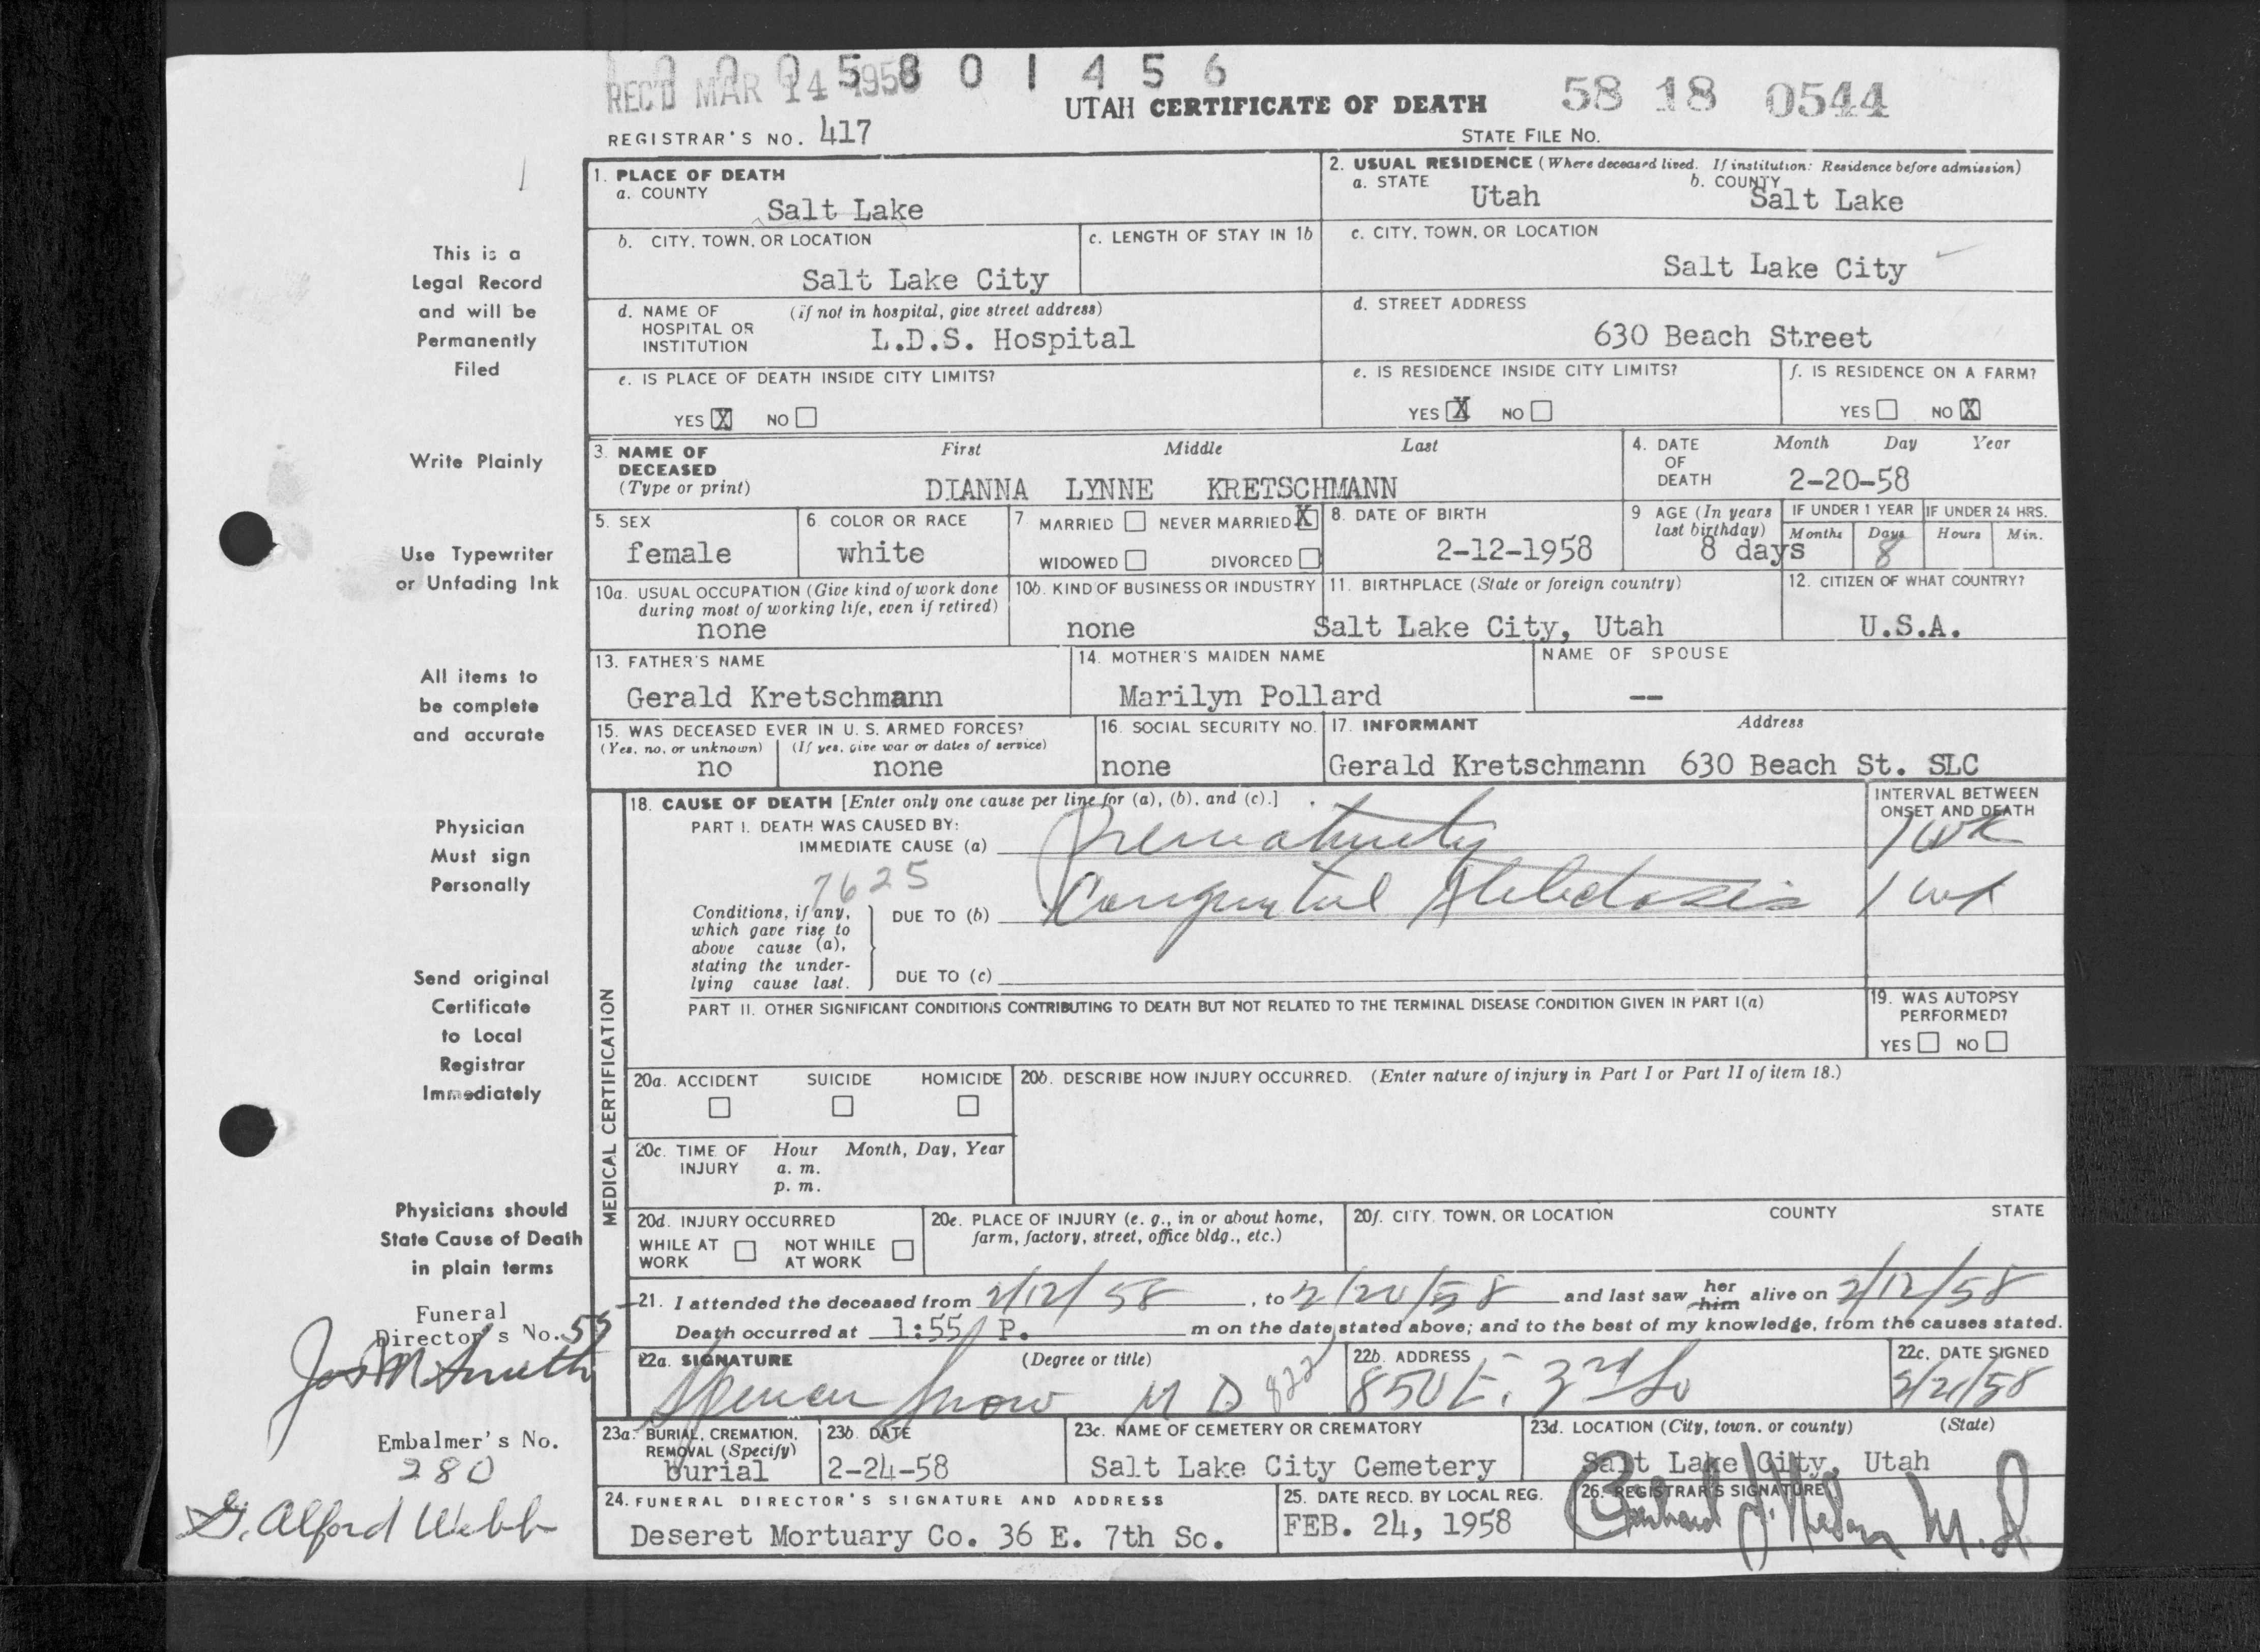 REC'D MAR 14 1958
5 8 0 1 4 5 6
UTAH CERTIFICATE OF DEATH
58 18 0544
REGISTRAR'S NO. 417
STATE FILE NO.
This is a
Legal Record
and will be
Permanently
Filed
Write Plainly
Use Typewriter
or Unfading Ink
All items to
be complete
and accurate
Physician
Must sign
Personally
Send original
Certificate
to Local
Registrar
Immediately
Physicians should
State Cause of Death
in plain terms
Funeral
Director's No. 55
Jos M Smith
Embalmer's No.
280
G. Alford Webb
1. PLACE OF DEATH
a. COUNTY
Salt Lake
b. CITY, TOWN, OR LOCATION
Salt Lake City
c. LENGTH OF STAY IN 1b
d. NAME OF (if not in hospital, give street address)
HOSPITAL OR
INSTITUTION
L.D.S. Hospital
e. IS PLACE OF DEATH INSIDE CITY LIMITS?
YES X NO
2. USUAL RESIDENCE (Where deceased lived. If institution: Residence before admission)
a. STATE Utah
b. COUNTY Salt Lake
c. CITY, TOWN, OR LOCATION
Salt Lake City
d. STREET ADDRESS
630 Beach Street
e. IS RESIDENCE INSIDE CITY LIMITS?
YES X NO
f. IS RESIDENCE ON A FARM?
YES NO X
3. NAME OF
DECEASED
(Type or print)
First Middle Last
DIANNA LYNNE KRETSCHMANN
4. DATE
OF
DEATH
Month Day Year
2-20-58
5. SEX
female
6 COLOR OR RACE
white
7 MARRIED NEVER MARRIED X
WIDOWED DIVORCED
8. DATE OF BIRTH
2-12-1958
9 AGE (In years
last birthday)
8 days
IF UNDER 1 YEAR
Months Days
8
IF UNDER 24 HRS.
Hours Min.
10a. USUAL OCCUPATION (Give kind of work done
during most of working life, even if retired)
none
10b. KIND OF BUSINESS OR INDUSTRY
none
11. BIRTHPLACE (State or foreign country)
Salt Lake City, Utah
12. CITIZEN OF WHAT COUNTRY?
U.S.A.
13. FATHER'S NAME
Gerald Kretschmann
14. MOTHER'S MAIDEN NAME
Marilyn Pollard
NAME OF SPOUSE
--
15. WAS DECEASED EVER IN U. S. ARMED FORCES?
(Yes, no, or unknown) (If yes, give war or dates of service)
no none
16. SOCIAL SECURITY NO.
none
17. INFORMANT Address
Gerald Kretschmann 630 Beach St. SLC
MEDICAL CERTIFICATION
18. CAUSE OF DEATH [Enter only one cause per line for (a), (b), and (c).]
INTERVAL BETWEEN
ONSET AND DEATH
PART I. DEATH WAS CAUSED BY:
IMMEDIATE CAUSE (a) Prematurity 1 wk
7625
Conditions, if any,
which gave rise to
above cause (a),
stating the under-
lying cause last.
DUE TO (b) Congenital Atelectasis 1 wk
DUE TO (c)
PART II. OTHER SIGNIFICANT CONDITIONS CONTRIBUTING TO DEATH BUT NOT RELATED TO THE TERMINAL DISEASE CONDITION GIVEN IN PART I(a)
19. WAS AUTOPSY
PERFORMED?
YES NO
20a. ACCIDENT SUICIDE HOMICIDE
20b. DESCRIBE HOW INJURY OCCURRED. (Enter nature of injury in Part I or Part II of item 18.)
20c. TIME OF Hour Month, Day, Year
INJURY a. m.
p. m.
20d. INJURY OCCURRED
WHILE AT NOT WHILE
WORK AT WORK
20e. PLACE OF INJURY (e. g., in or about home,
farm, factory, street, office bldg., etc.)
20f. CITY, TOWN, OR LOCATION COUNTY STATE
21. I attended the deceased from 2/12/58, to 2/20/58 and last saw her him alive on 2/12/58
Death occurred at 1:55 P. m on the date stated above; and to the best of my knowledge, from the causes stated.
22a. SIGNATURE (Degree or title)
Spencer Snow M D 822
22b. ADDRESS
850 E. 3rd So
22c. DATE SIGNED
2/21/58
23a. BURIAL, CREMATION,
REMOVAL (Specify)
burial
23b. DATE
2-24-58
23c. NAME OF CEMETERY OR CREMATORY
Salt Lake City Cemetery
23d. LOCATION (City, town, or county) (State)
Salt Lake City, Utah
24. FUNERAL DIRECTOR'S SIGNATURE AND ADDRESS
Deseret Mortuary Co. 36 E. 7th So.
25. DATE RECD. BY LOCAL REG.
FEB. 24, 1958
26. REGISTRAR'S SIGNATURE
M.D.